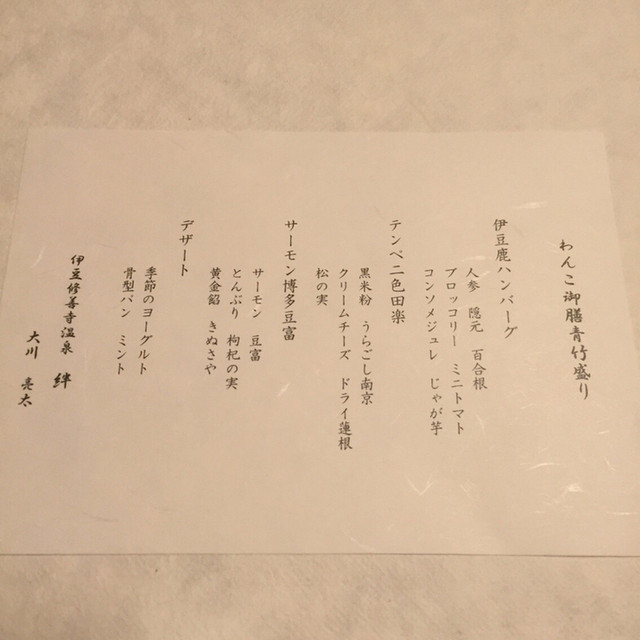 わんこ御膳青竹盛り
伊豆鹿ハンバーグ
人参　隠元　百合根
ブロッコリー　ミニトマト
コンソメジュレ　じゃが芋
テンペ二色田楽
黒米粉　うらごし南京
クリームチーズ　ドライ蓮根
松の実
サーモン博多豆富
サーモン　豆富
とんぶり　枸杞の実
黄金餡　きぬさや
デザート
季節のヨーグルト
骨型パン　ミント
伊豆修善寺温泉　絆
大川　亮太